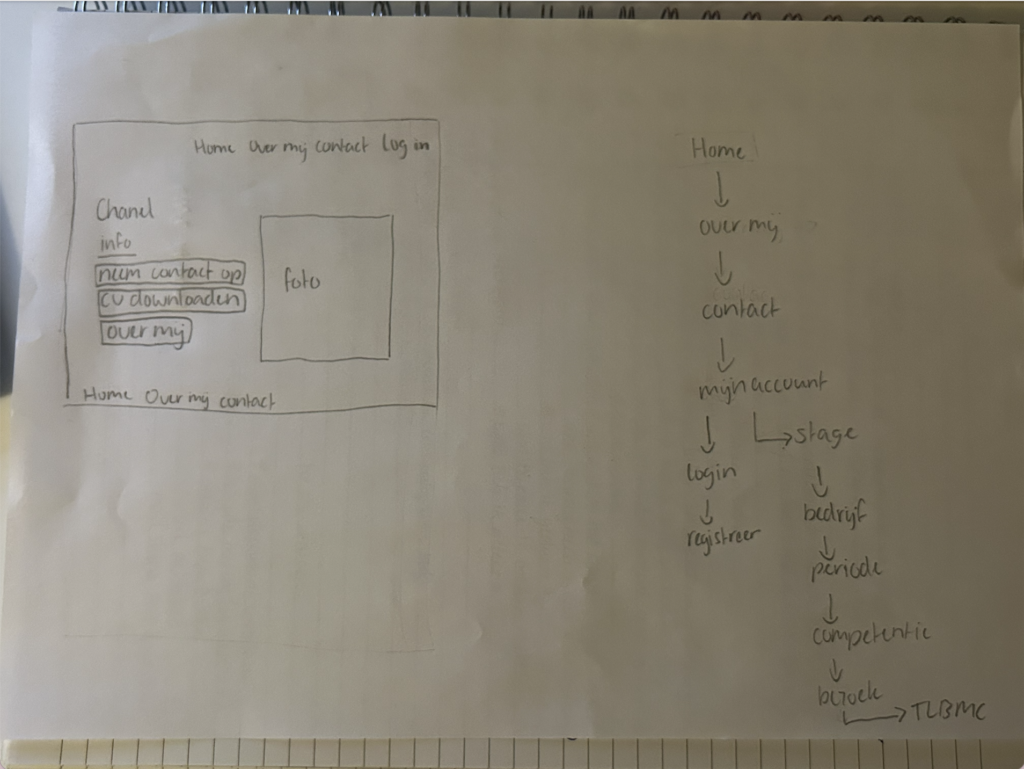 Home Over mij contact Log in
Chanel
info
neem contact op
cv downloaden
over mij
foto
Home Over mij contact
Home
over mij
contact
mijn account
stage
login
registreer
bedrijf
periode
competentie
bezoek
TLBMC